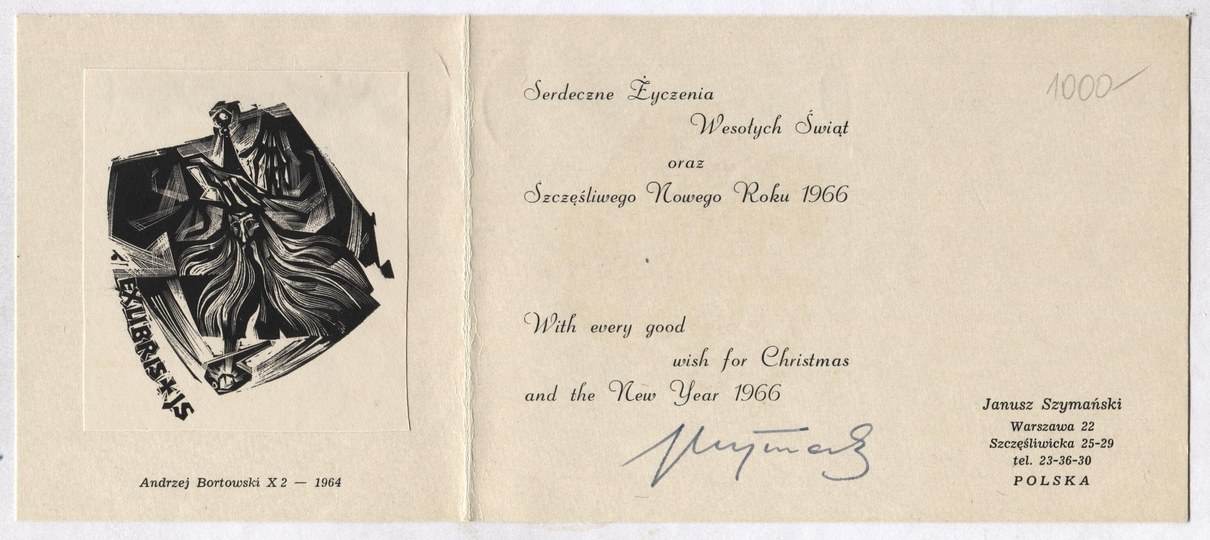 EXLIBRIS + JS
Andrzej Bortowski X 2 — 1964
Serdeczne Życzenia
Wesołych Świąt
oraz
Szczęśliwego Nowego Roku 1966
With every good
wish for Christmas
and the New Year 1966
1000
Janusz Szymański
Warszawa 22
Szczęśliwicka 25-29
tel. 23-36-30
POLSKA